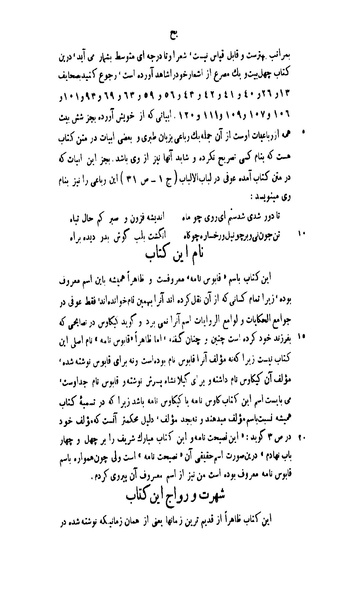 یح
بمراتب بهترست و قابل قیاس نیست، شعرا و تا درجه ای متوسط بشمار می آید، درین
کتاب چهل بیت و یك مصرع از اشعار خود را شاهد آورده است، رجوع کنید بصحایف
۱۳ و ۲۶ و ۴۰ و ۴۱ و ۴۲ و ۴۳ و ۵۶ و ۵۹ و ۶۳ و ۶۹ و ۹۳ و ۱۰۱ و
۱۰۶ و ۱۰۷ و ۱۰۹ و ۱۱۱ و ۱۲۰. ابیاتی که از خویش آورده بجز شش بیت
همه از رباعیات اوست از آن جمله یك رباعی بزبان طبری و بعضی ابیات در متن کتاب ۵
هست که بنام کسی تصریح نکرده و شاید آنها نیز از وی باشد. بجز این ابیات که
در متن کتاب آمده عوفی در لباب الالباب (ج ۱ ـ ص ۳۱) این رباعی را نیز بنام
وی مینویسد:
تا دور شدی شدستم ای روی چو ماه اندیشه فزون و صبر کم حال تباه
تن چون نی و بر چو نیل و رخساره چو کاه انگشت بلب گوش بدر دیده براه ۱۰
نام این کتاب
این کتاب باسم «قابوس نامه» معروفست و ظاهراً همیشه باین اسم معروف
بوده، زیرا تمام کسانی که از آن نقل کرده اند آنرا بهمین نام خوانده اند، فقط عوفی در
جوامع الحکایات و لوامع الروایات اسم آنرا نمی برد و گوید کیکاوس در نصایحی که
بفرزند خود کرده است چنین و چنان گفته، اما ظاهراً «قابوس نامه» نام اصلی این ۱۵
کتاب نیست زیرا که نه مؤلف آنرا قابوس نام بوده است و نه برای قابوس نوشته شده،
مؤلف آن کیکاوس نام داشته و برای گیلانشاه پسرش نوشته و قابوس نام جد اوست،
می بایست اسم این کتاب کاوس نامه یا کیکاوس نامه باشد زیرا که در تسمیهٔ کتاب
همیشه نسبت باسم مؤلف میدهند و نه بجد مؤلف، دلیل محکمتر آنست که مؤلف خود
در ص ۳ گوید: «این نصیحت نامه و این کتاب مبارك شریف را بر چهل و چهار ۲۰
باب نهادم» درین صورت اسم حقیقی آن «نصیحت نامه» است ولی چون همواره باسم
قابوس نامه معروف بوده است من نیز از اسم معروف آن پیروی کردم.
شهرت و رواج این کتاب
این کتاب ظاهراً از قدیم ترین زمانها یعنی از همان زمانیکه نوشته شده در